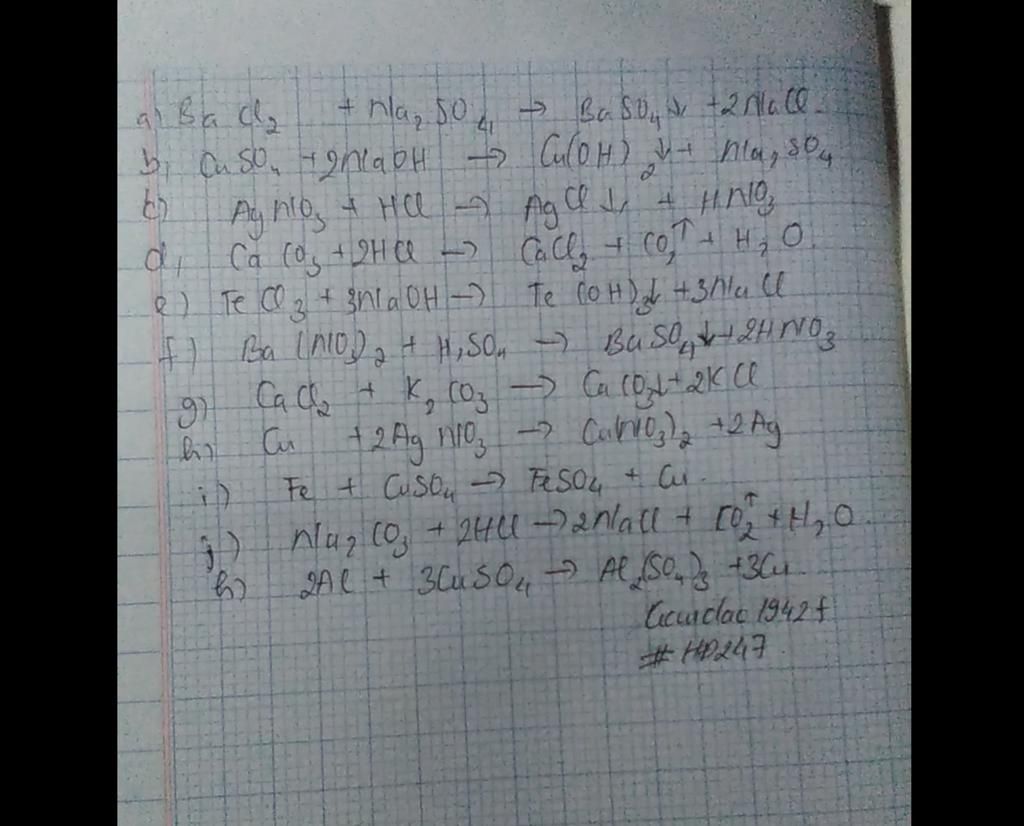 a) BaCl₂ + Na₂SO₄ → BaSO₄↓ + 2NaCl.
b) CuSO₄ + 2NaOH → Cu(OH)₂↓ + Na₂SO₄
c) AgNO₃ + HCl → AgCl↓ + HNO₃
d) CaCO₃ + 2HCl → CaCl₂ + CO₂↑ + H₂O
e) FeCO₃ + 3NaOH → Fe(OH)₃↓ + 3NaCl
f) Ba(NO₃)₂ + H₂SO₄ → BaSO₄↓ + 2HNO₃
g) CaCl₂ + K₂CO₃ → CaCO₃↓ + 2KCl
h) Cu + 2AgNO₃ → Cu(NO₃)₂ + 2Ag
i) Fe + CuSO₄ → FeSO₄ + Cu.
j) Na₂CO₃ + 2HCl → 2NaCl + CO₂↑ + H₂O.
h) 2Al + 3CuSO₄ → Al₂(SO₄)₃ + 3Cu.
1942f
# HD247.